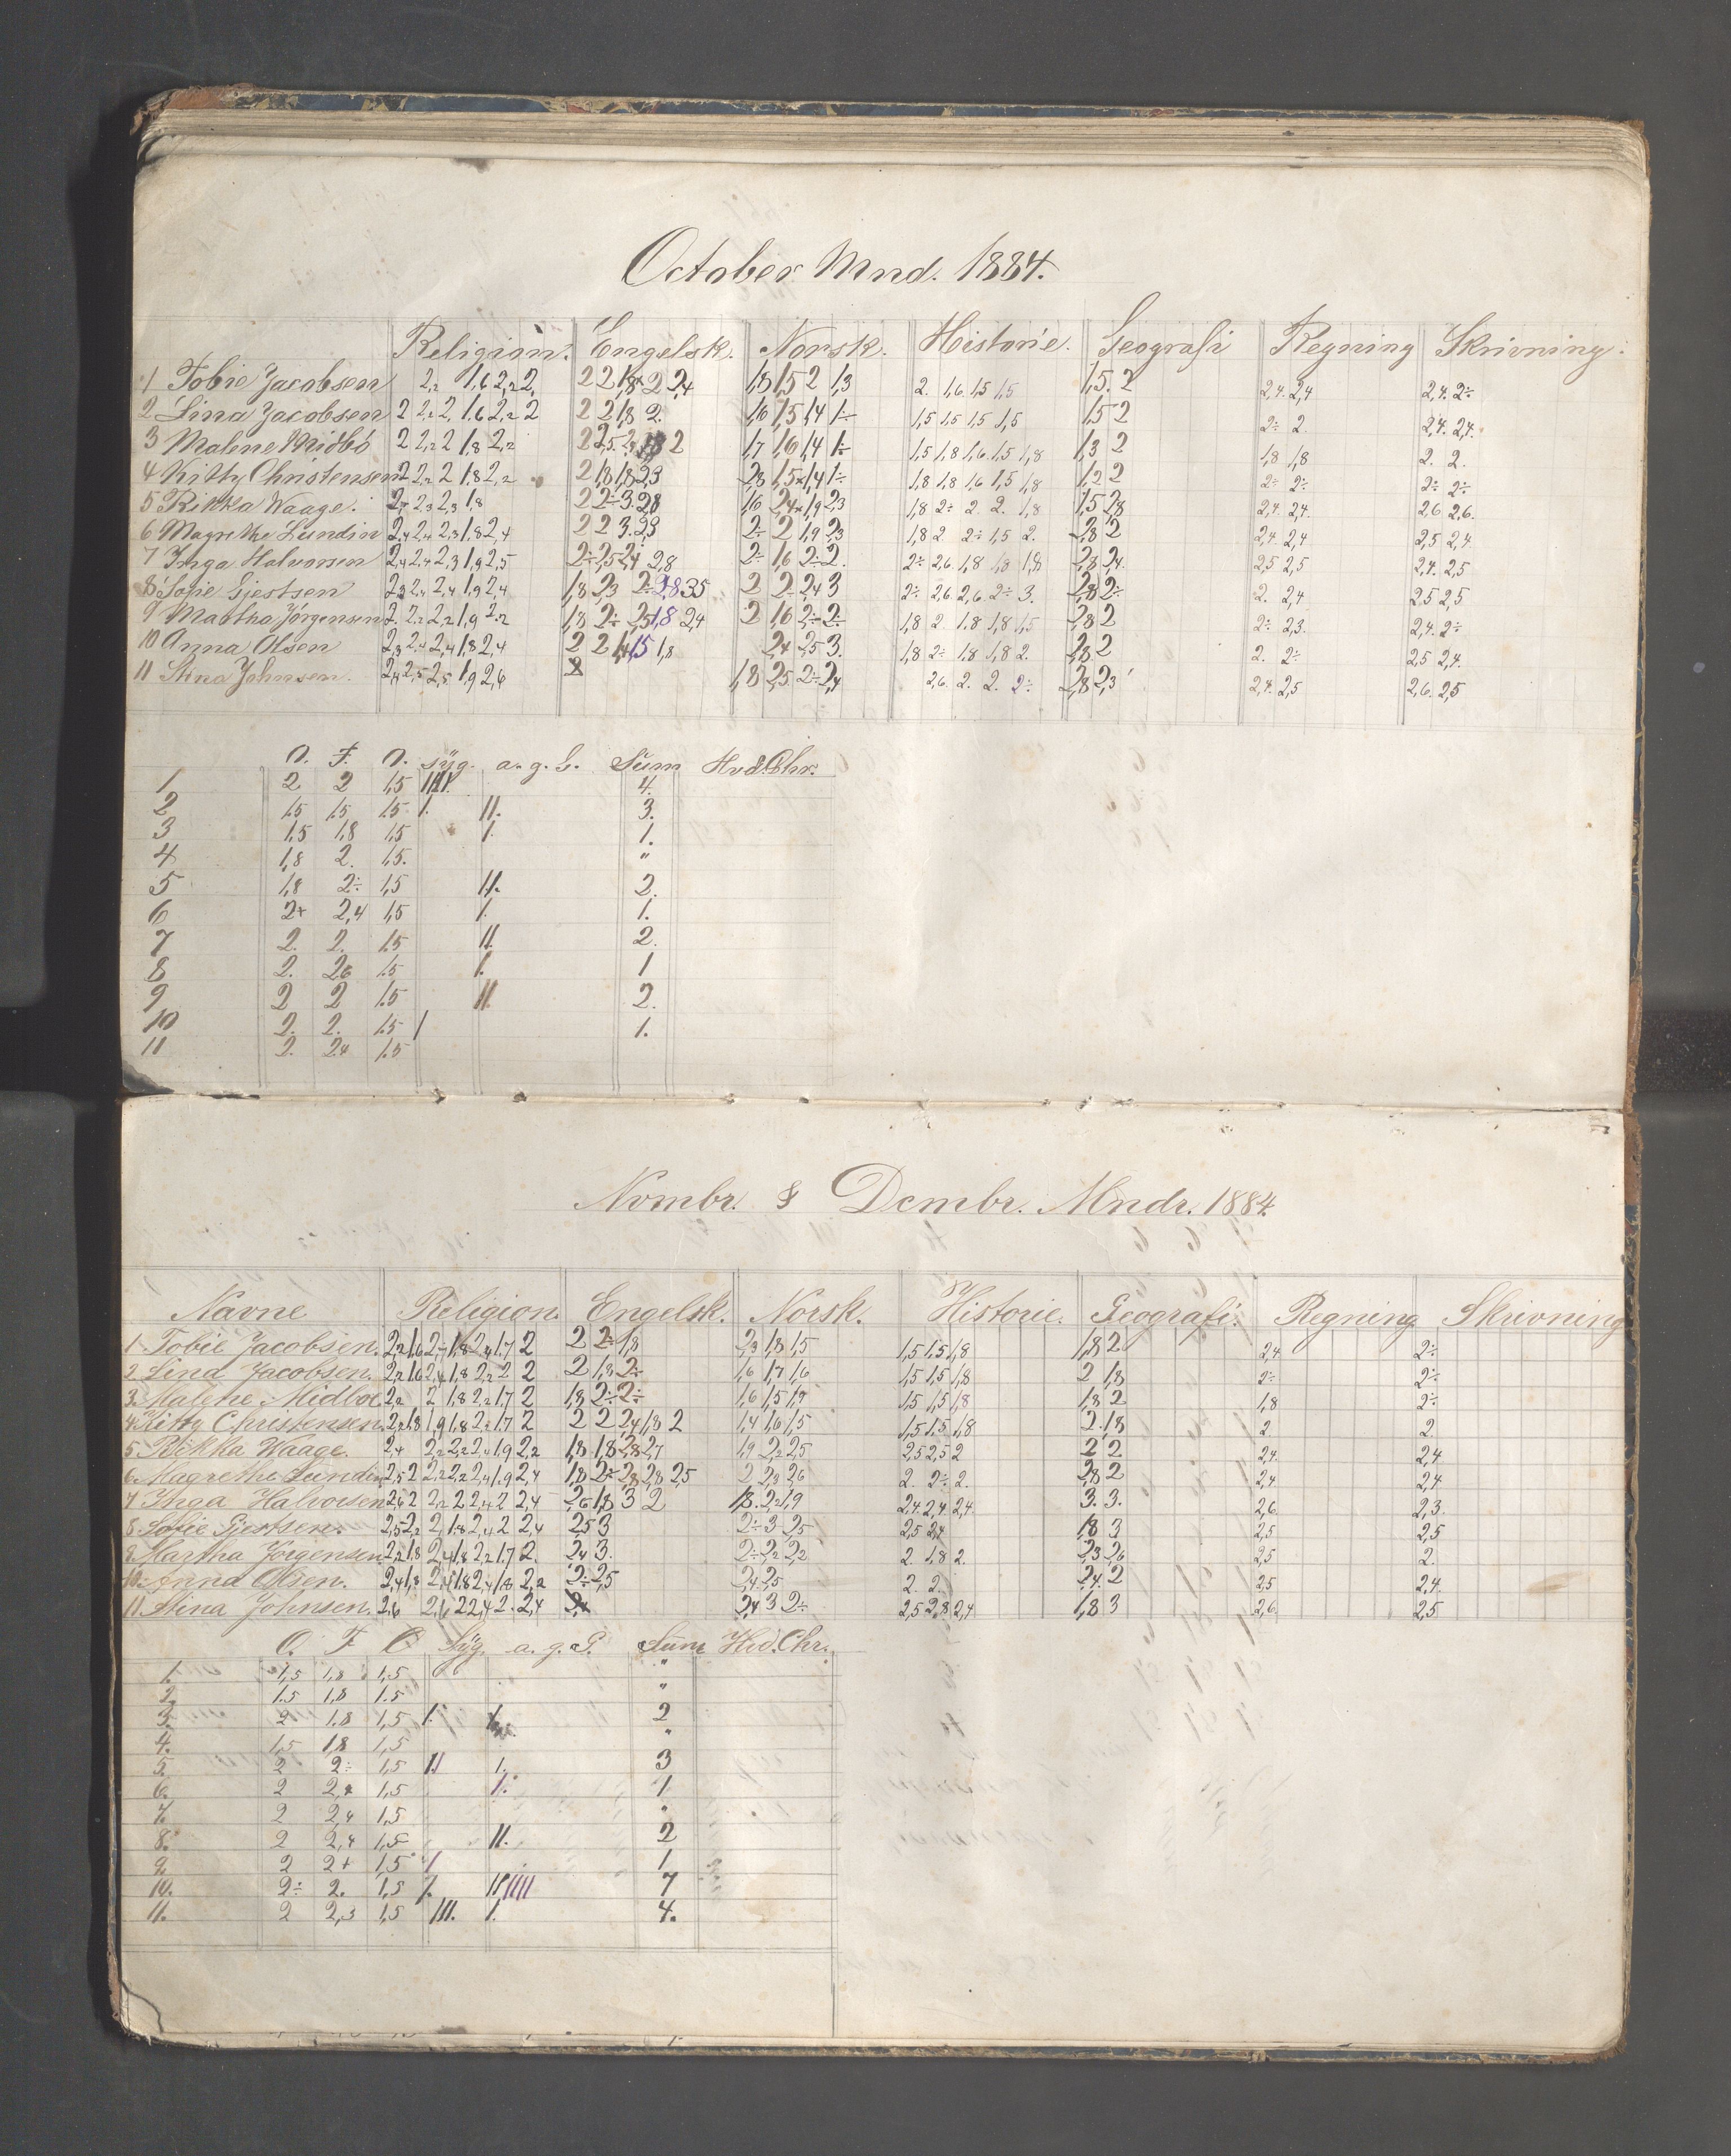 October Mnd. 1884.
Religion. Engelsk. Norsk. Historie. Geografi Regning Skrivning.
1 Tobie Jacobsen 2,2 1,6 2,2 2 2 2 1,8 2 2,4 1,8 1,5 2 1,3 2. 1,6 1,5 1,5 1,5. 2 2,4. 2,4 2,4. 2÷
2 Lina Jacobsen 2 2,2 2 1,6 2,2 2 2 2 1,8 2. 1,6 1,5 1,4 1÷ 1,5 1,5 1,5 1,5 1,5 2 2÷ 2. 2,4. 2,4.
3 Malene Midbö 2 2,2 2 1,8 2,2 1,7 1,6 1,4 1÷ 1,5 1,8 1,6 1,5 1,8 1,3 2 1,8 1,8 2. 2.
4 Kitty Christensen 2 2,2 2 1,8 2,2 2 1,8 1,8 2,3 1,8 1,8 1,6 1,5 1,8 1,2 2 2÷ 2÷ 2÷ 2÷
5 Rikka Waage. 2,2 2,3 2,3 1,8 2 2÷ 3. 2,8 1,6 2,4 1,9 2,3 1,8 2÷ 2. 2. 1,8 1,5 2,8 2,4. 2,4. 2,6 2,6.
6 Magrethe Lundin 2,4 2,4 2,3 1,8 2,4 2 2 3. 2,3 2÷ 2 1,9 2,3 1,8 2 2÷ 1,5 2. 2,8 2 2,4 2,4 2,5 2,4
7 Inga Halvorsen 2,4 2,4 2,3 1,9 2,5 2÷ 2,5 2,4 2,8 2÷ 1,6 2÷ 2. 2÷ 2,6. 1,8 1,8 1,8 2,8 2,4. 2,5 2,5 2,4. 2,5
8 Sofie Gjestsen 2,3 2,4 2,4 1,9 2,4 1,8 2,3 2÷ 2,8 3,5 2 2 2,4 3 2÷ 2,6 2,6. 2÷ 3. 2,8 2÷ 2. 2,4 2,5 2,5
9 Martha Jörgensen 2. 2,2 2,2 1,9 2,2 1,8 2÷ 2,5 1,8 2,4 2 1,6 2÷ 2÷ 1,8 2. 1,8 1,8 1,5 2,8 2 2÷ 2,3. 2,4. 2÷
10 Anna Olsen 2,3 2,4 2,4 1,8 2,4 2 2 1,4 1,5 1,8 2,4 2,5 3. 1,8 2÷ 1,8 1,8 2. 2,8 2 2. 2÷ 2,5 2,4.
11 Stina Johnsen. 2,4 2,5 2,5 1,9 2,6 1,8 2,5 2÷ 2,4 2,6. 2. 2. 2÷ 2,8 2,3 2,4. 2,5 2,6. 2,5
O. F. O. Syg. a. g. G. Sum Hvd. Chr.
1 2 2 1,5 4.
2 1,5 1,5 1,5 1. 11. 3.
3 1,5 1,8 1,5 1. 1.
4 1,8 2. 1,5. "
5 1,8 2÷ 1,5 11. 2.
6 2+ 2,4 1,5 1. 1.
7 2. 2. 1,5 11. 2.
8 2. 2,6 1,5 1. 1
9 2 2 1,5 11. 2.
10 2. 2. 1,5 1 1.
11 2. 2,4 1,5
Nvmbr. & Dcmbr. Mndr. 1884.
Navne Religion. Engelsk. Norsk. Historie. Geografi. Regning Skrivning
1. Tobie Jacobsen. 2 2÷ 1,8 2,3 1,8 1,5 1,5 1,5 1,8 1,8 2 2,4 2÷
2. Lina Jacobsen. 2 1,8 2÷ 1,6 1,7 1,6 1,5 1,5 1,8 2 1,8 2÷ 2÷
3. Malene Midboe 2,2 2 1,8 2,2 1,7 2 1,8 2÷ 2÷ 1,6 1,5 1,7 1,5 1,5 1,8 1,8 2 1,8 2÷
4. Kitty Christensen. 2,2 1,8 1,9 1,8 2,2 1,7 2 2 2 2,4 1,8 2 1,4 1,6 1,5 1,5 1,5 1,8 2 1,8 2. 2.
5. Rikka Waage. 2,4 2,2 2,2 2,4 1,9 2,2 1,8 1,8 2,8 2,7 1,9 2,2 2,5 2,5 2,5 2 2 2 2,4. 2,4
6. Magrethe Lundin 2,5 2 2,2 2,2 2,4 1,9 2,4 1,8 2÷ 2,8 2,8 2,5 2 2,3 2,6 2. 2÷ 2. 2,8 2 2,4 2,4
7 Inga Halvorsen 2,6 2 2,2 2 2,4 2 2,4 2,6 1,8 3 2 1,8. 2,2 1,9 2,4. 2,4. 2,4. 3. 3. 2,6. 2,3.
8. Sofie Gjestsen. 2,5 2,2 2 1,8 2,4 2 2,4 2,5 3 2÷ 3 2,5 2,5 2,4 1,8 3 2,5 2,5
9. Martha Jörgensen 2,2 1,8 2,4 1,8 2,2 1,7 2. 2,4 3. 2÷ 2,2 2,2 2. 1,8 2. 2,3 2,6 2,5 2.
10. Anna Olsen. 2,4 1,8 2,4 1,8 2,4 1,8 2,2 2÷ 2,5 2,4 2,5 2. 2. 2,4. 2 2,5 2,4.
11 Stina Johnsen. 2,6 2,6 2 2,4 2. 2,4 2,4 3 2÷ 2,5 2,8 2,4 1,8 3 2,6. 2,5
O. F. O. Syg. a. g. G. Sum Hvd. Chr.
1. 1,5 1,8 1,5 "
2. 1,5 1,8 1,5 "
3. 2 1,8 1,5 1. 1. 2
4. 1,5 1,8 1,5 "
5. 2 2÷ 1,5 11 1. 3
6. 2 2,4 1,5 1. 1
7. 2 2,4 1,5 "
8. 2 2,4 1,5 11. 2
9. 2 2+ 1,5 1 1
10. 2÷ 2. 1,5 1. 7
11. 2 2,3 1,5 111. 1. 4.